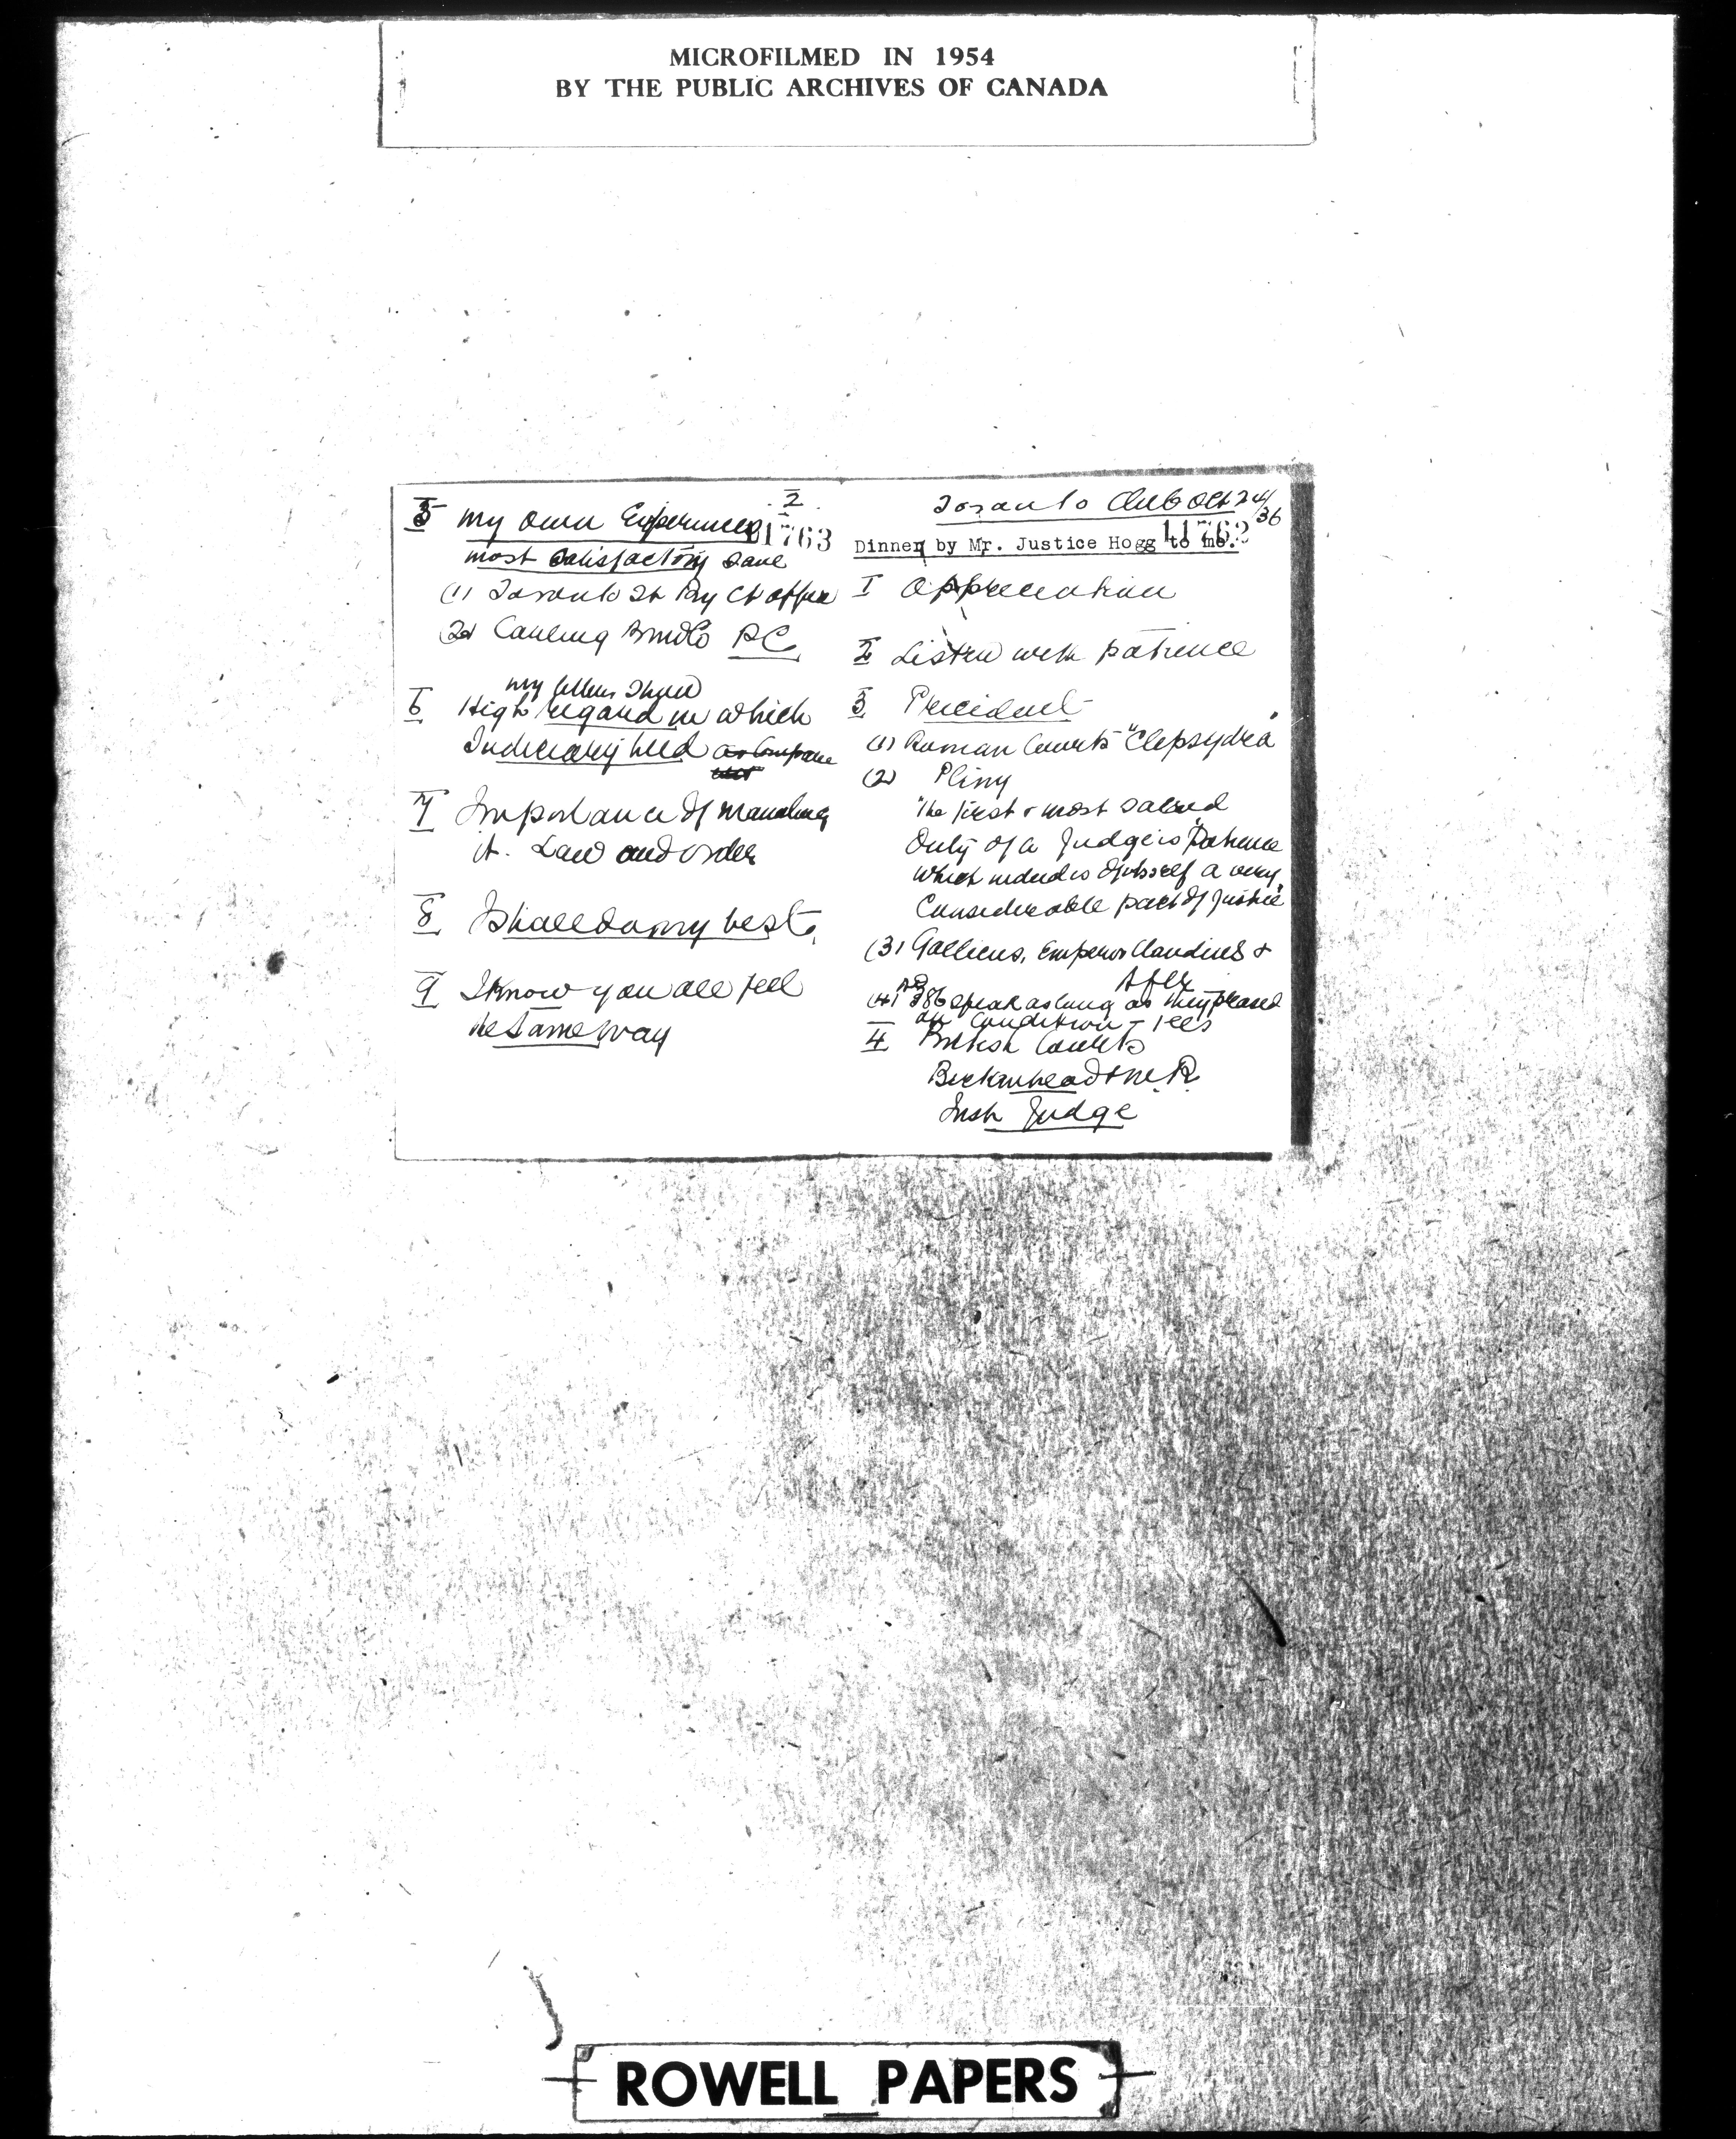 MICROFILMED IN 1954
BY THE PUBLIC ARCHIVES OF CANADA
Toronto Club Oct 24/36
11762
Dinner by Mr. Justice Hogg to me.
1 Appreciation
2 Listen with patience
3 Precident
(1) Roman Courts "Clepsydra"
(2) Pliny
"The first & most sacred
Duty of a Judge is Patience
which indeed is of itself a very
Considerable part of Justice"
(3) Gallicus, Emperor Claudius &
After
(4) AD 386 speak as long as they pleased
on condition – fees
4 British Courts
Birkenhead & M.R.
Irish Judge
2
5 My own Experience
11763
most satisfactory
(1) Toronto
(2) P.C.
my letters
6 High regard in which
Judiciary held as compare
7 Importance of
it. Law and order
8 I shall do my best.
9 I know you all feel
the same way
ROWELL PAPERS